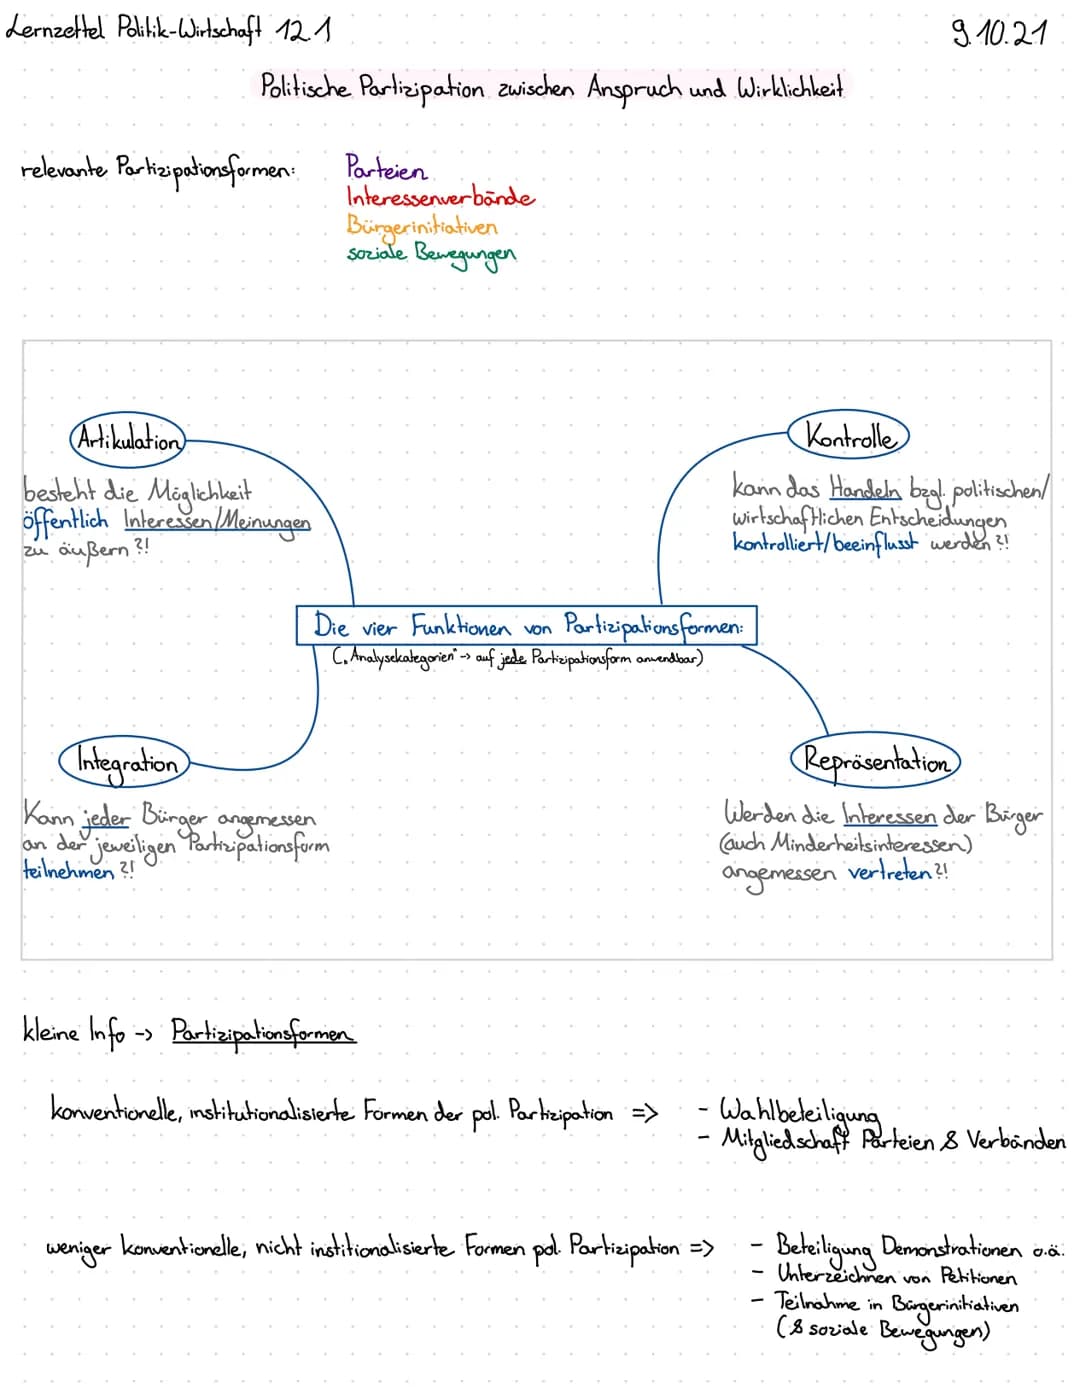 Lernzettel Politik-Wirtschaft 12.1
9.10.21
Politische Partizipation zwischen Anspruch und Wirklichkeit
relevante Partizipationsformen:
Parteien
Interessenverbände
Bürgerinitiativen
soziale Bewegungen
Artikulation
besteht die Möglichkeit
öffentlich Interessen/Meinungen
zu äußern?!
Kontrolle
kann das Handeln bzgl. politischen/
wirtschaftlichen Entscheidungen
kontrolliert/beeinflusst werden?!
Die vier Funktionen von Partizipationsformen:
(„Analysekategorien" -> auf jede Partizipationsform anwendbar)
Integration
Kann jeder Bürger angemessen
an der jeweiligen Partizipationsform
teilnehmen?!
Repräsentation
Werden die Interessen der Bürger
(auch Minderheitsinteressen)
angemessen vertreten?!
kleine Info -> Partizipationsformen
konventionelle, institutionalisierte Formen der pol. Partizipation =>
- Wahlbeteiligung
- Mitgliedschaft Parteien & Verbänden
weniger konventionelle, nicht institionalisierte Formen pol. Partizipation =>
- Beteiligung Demonstrationen o.ä.
- Unterzeichnen von Petitionen
- Teilnahme in Bürgerinitiativen
(& soziale Bewegungen)